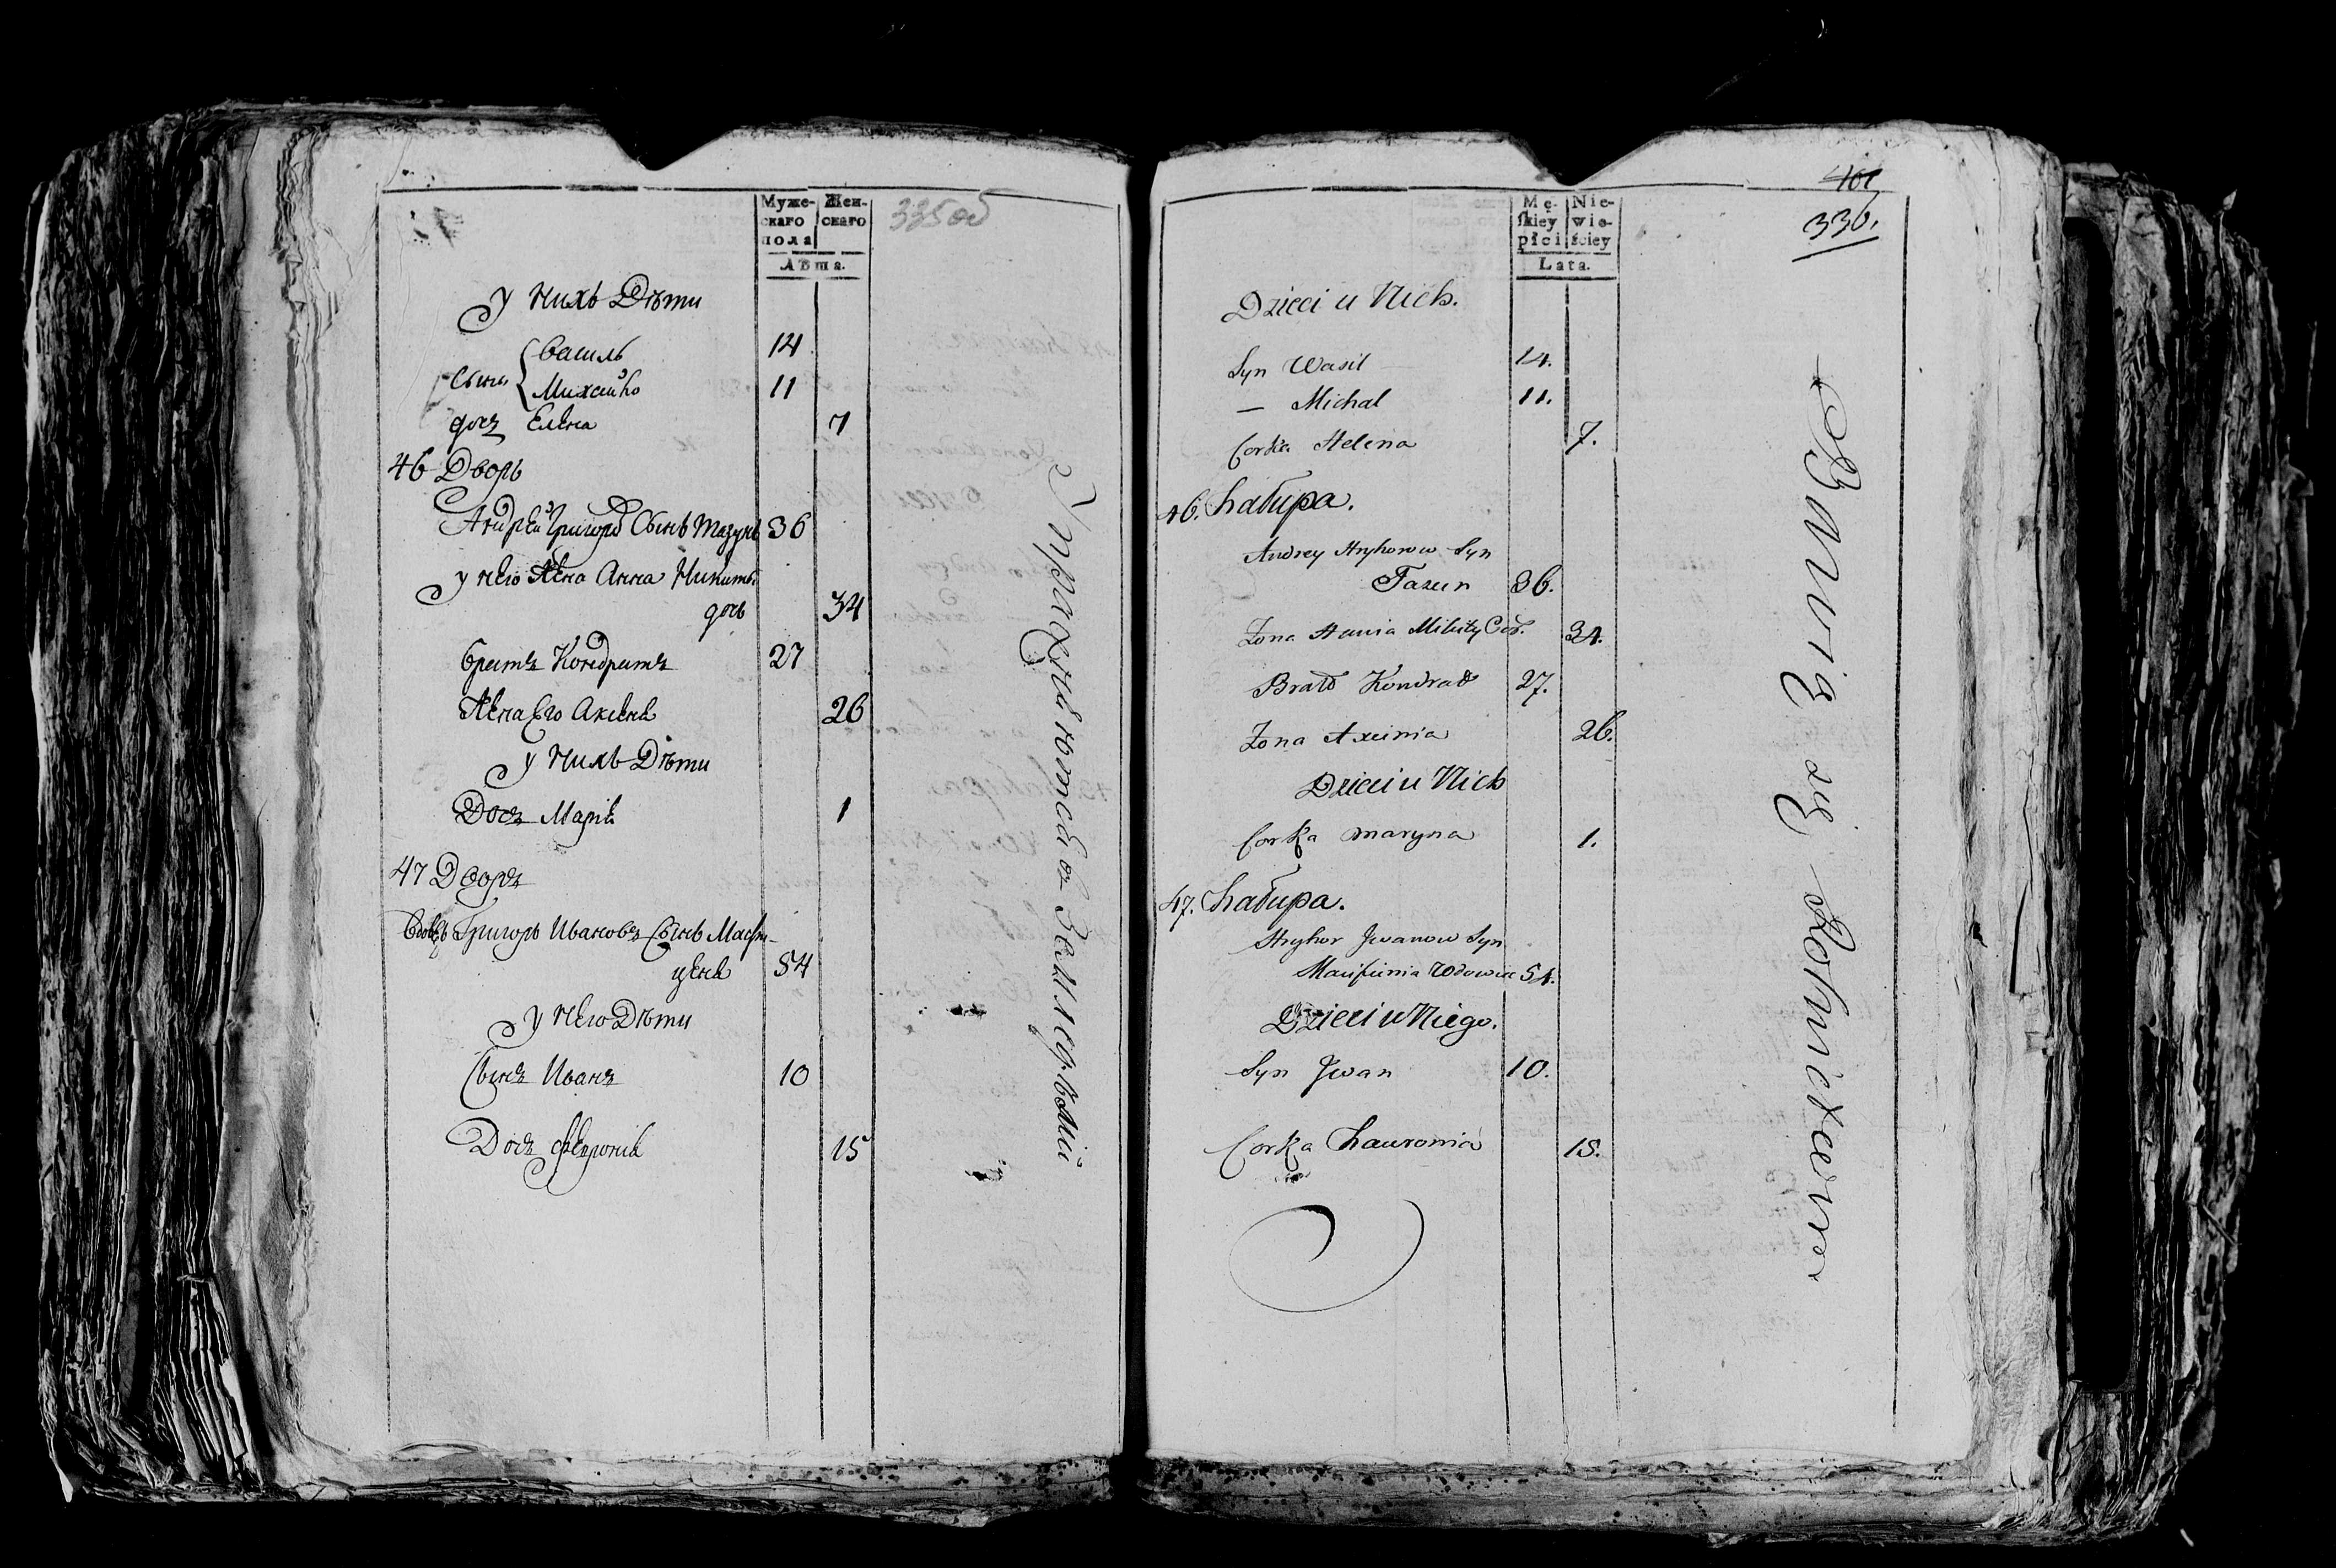 335 об
Муже-
скаго
пола
Жен-
скаго
Лѣта.
У нихъ Дѣти
Сыны Василь 14
Михайло 11
дочъ Елена 7
46 Дворъ
Андрей Григоръ Сынъ Тазунъ 36
у него Жена Анна Никиты
дочь 34
братъ Кондратъ 27
Жена Его Аксеня 26
у нихъ Дѣти
Дочъ Марія 1
47 Дворъ
Вдовецъ Григоръ Ивановъ Сынъ
54
у него Дѣти
Сынъ Иванъ 10
Дочъ 15
Упражняются в Земледѣлии
336.
Mę-
skiey
płci
Nie-
wie-
ściey
Lata.
Dzieci u Nich.
Syn Wasil 14.
— Michal 11.
Corka Helena 7.
46. Chałupa.
Andrey Hryhorow Syn
Tazun 36.
Zona Hania Mikity Cor. 34.
Bratt Kondrat 27.
Zona Axeinia 26.
Dzieci u Nich
Corka Maryna 1.
47. Chałupa.
Hryhor Jwanow Syn
Wdowiec 54.
Dzieci u Niego.
Syn Jwan 10.
Corka Chauronia 15.
Bawią się Rolnictwem